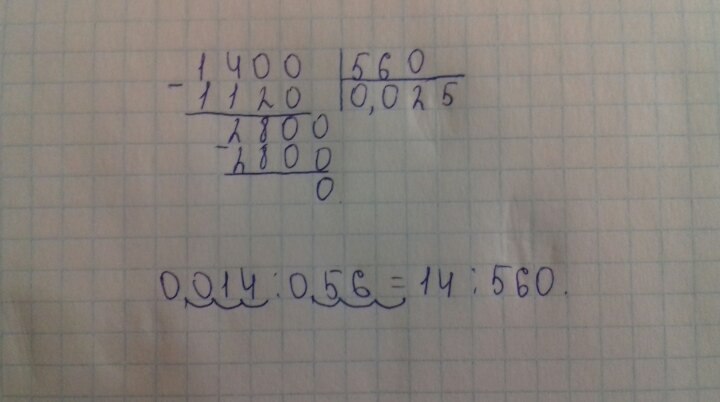 1,400 | 560
- 1120 | 0,025
2800
- 2800
0
0,014 : 0,56 = 14 : 560.